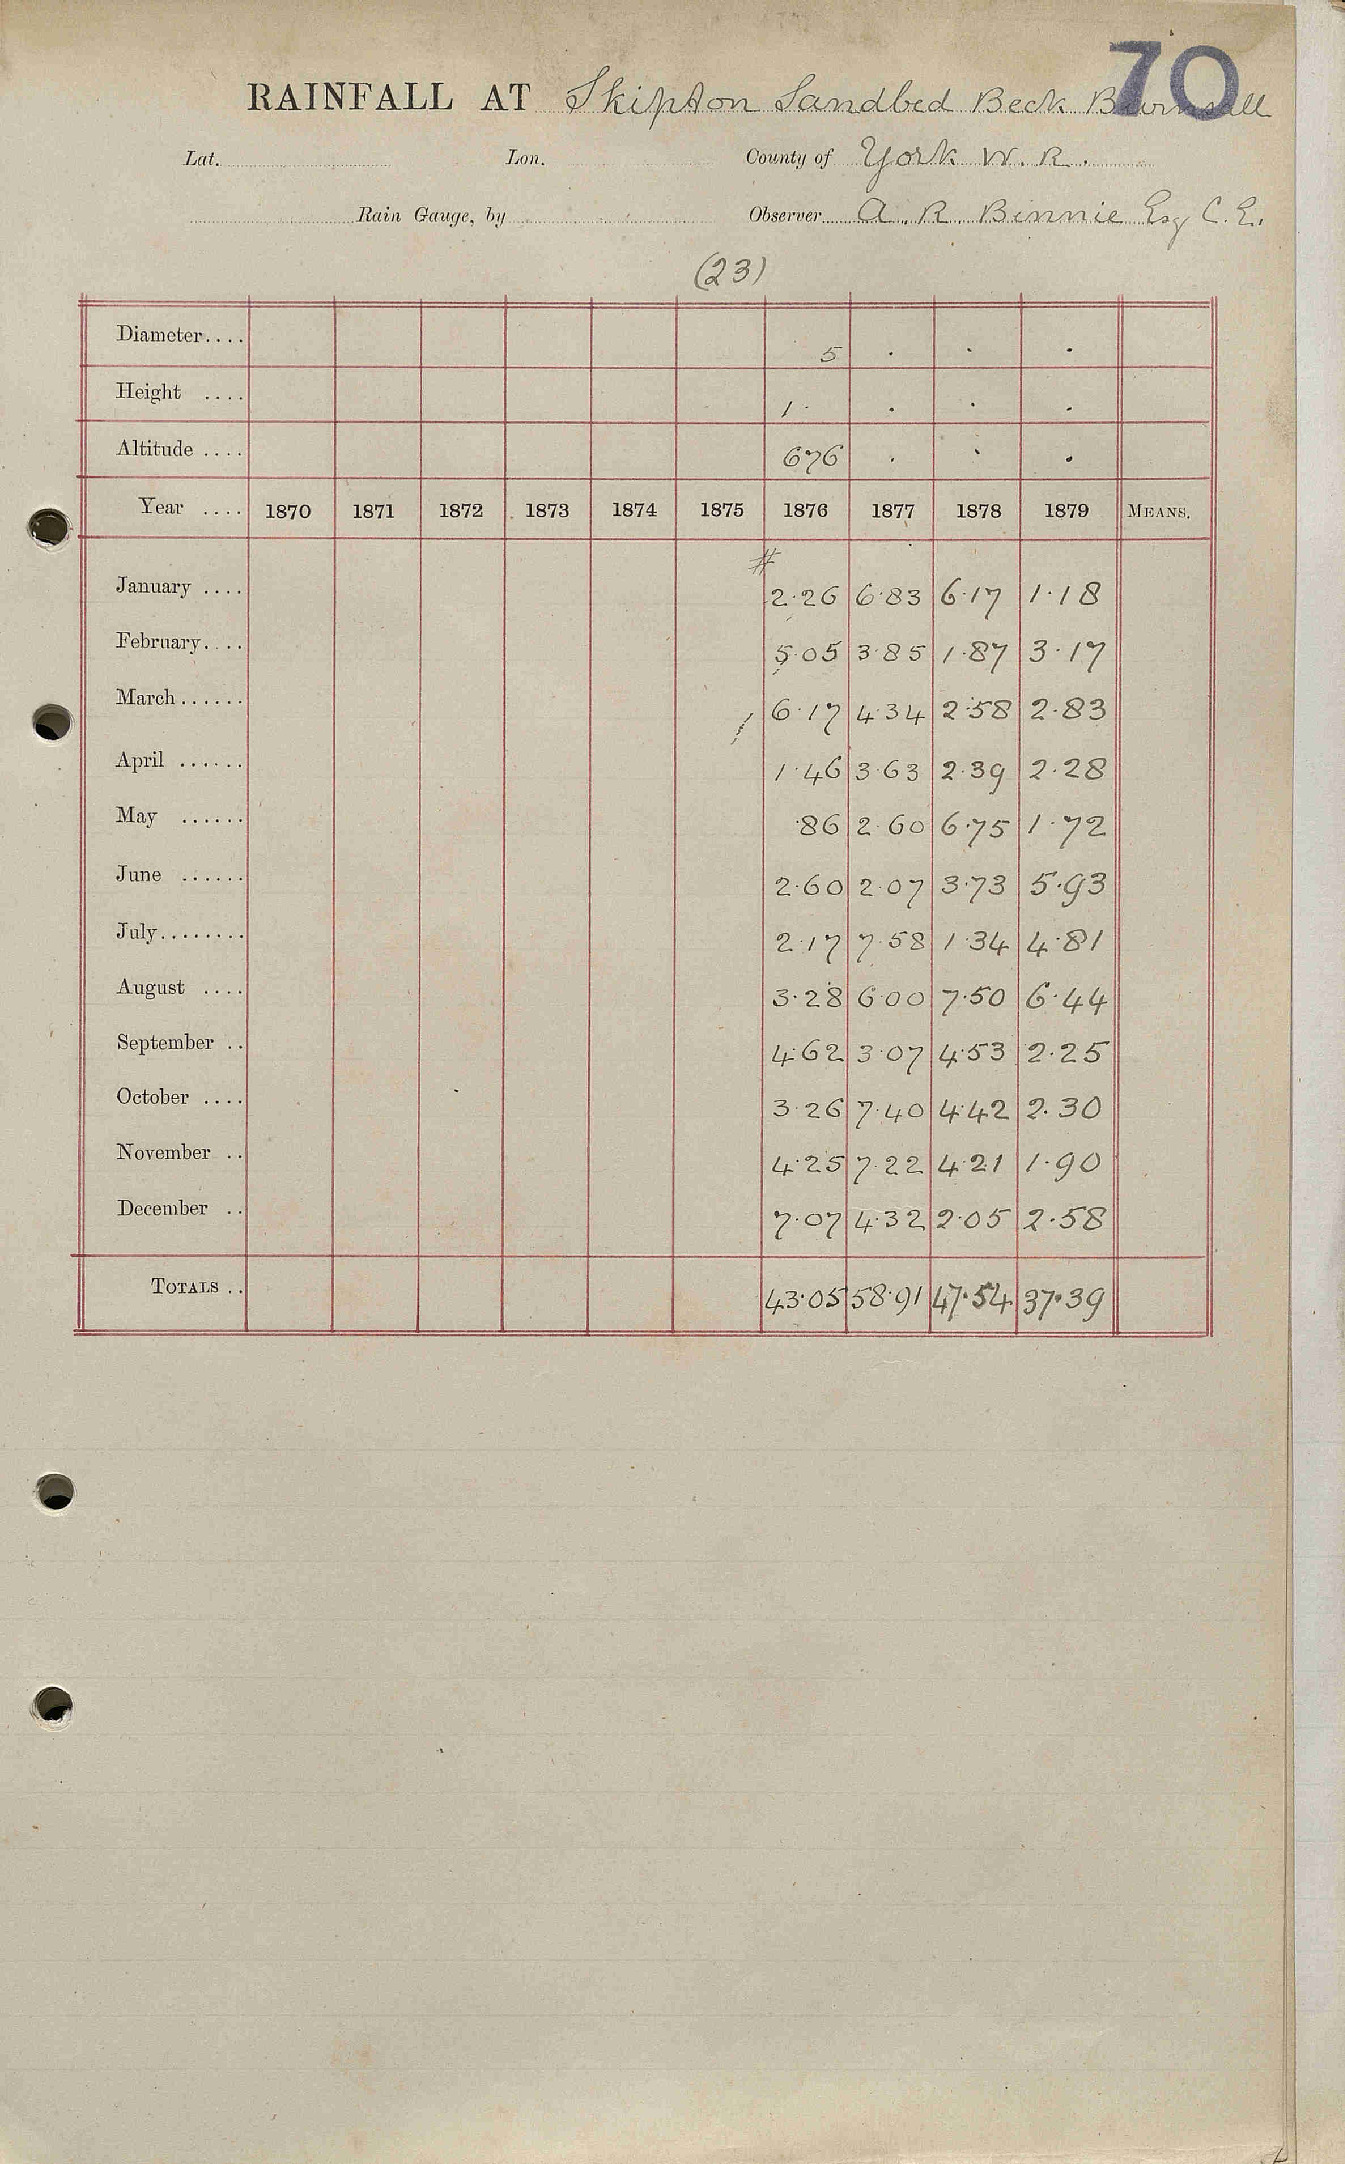 70
RAINFALL AT Skipton Sandbed Beck Burnsall
Lat. Lon. County of York W. R.
Rain Gauge, by Observer A. R. Binnie Esq C. E.
(23)
Diameter.... 5 . . .
Height .... 1 . . . .
Altitude .... 676 . . .
Year .... 1870 1871 1872 1873 1874 1875 1876 1877 1878 1879 MEANS.
#
January .... 2.26 6.83 6.17 1.18
February.... 5.05 3.85 1.87 3.17
March...... 6.17 4.34 2.58 2.83
April ...... 1.46 3.63 2.39 2.28
May ...... .86 2.60 6.75 1.72
June ...... 2.60 2.07 3.73 5.93
July........ 2.17 7.58 1.34 4.81
August .... 3.28 6.00 7.50 6.44
September .. 4.62 3.07 4.53 2.25
October .... 3.26 7.40 4.42 2.30
November .. 4.25 7.22 4.21 1.90
December .. 7.07 4.32 2.05 2.58
TOTALS .. 43.05 58.91 47.54 37.39